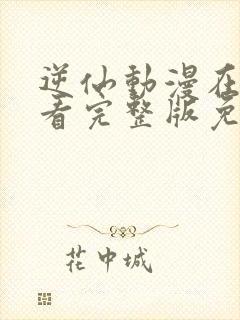 逆仙動漫在
看完整版免
花中城